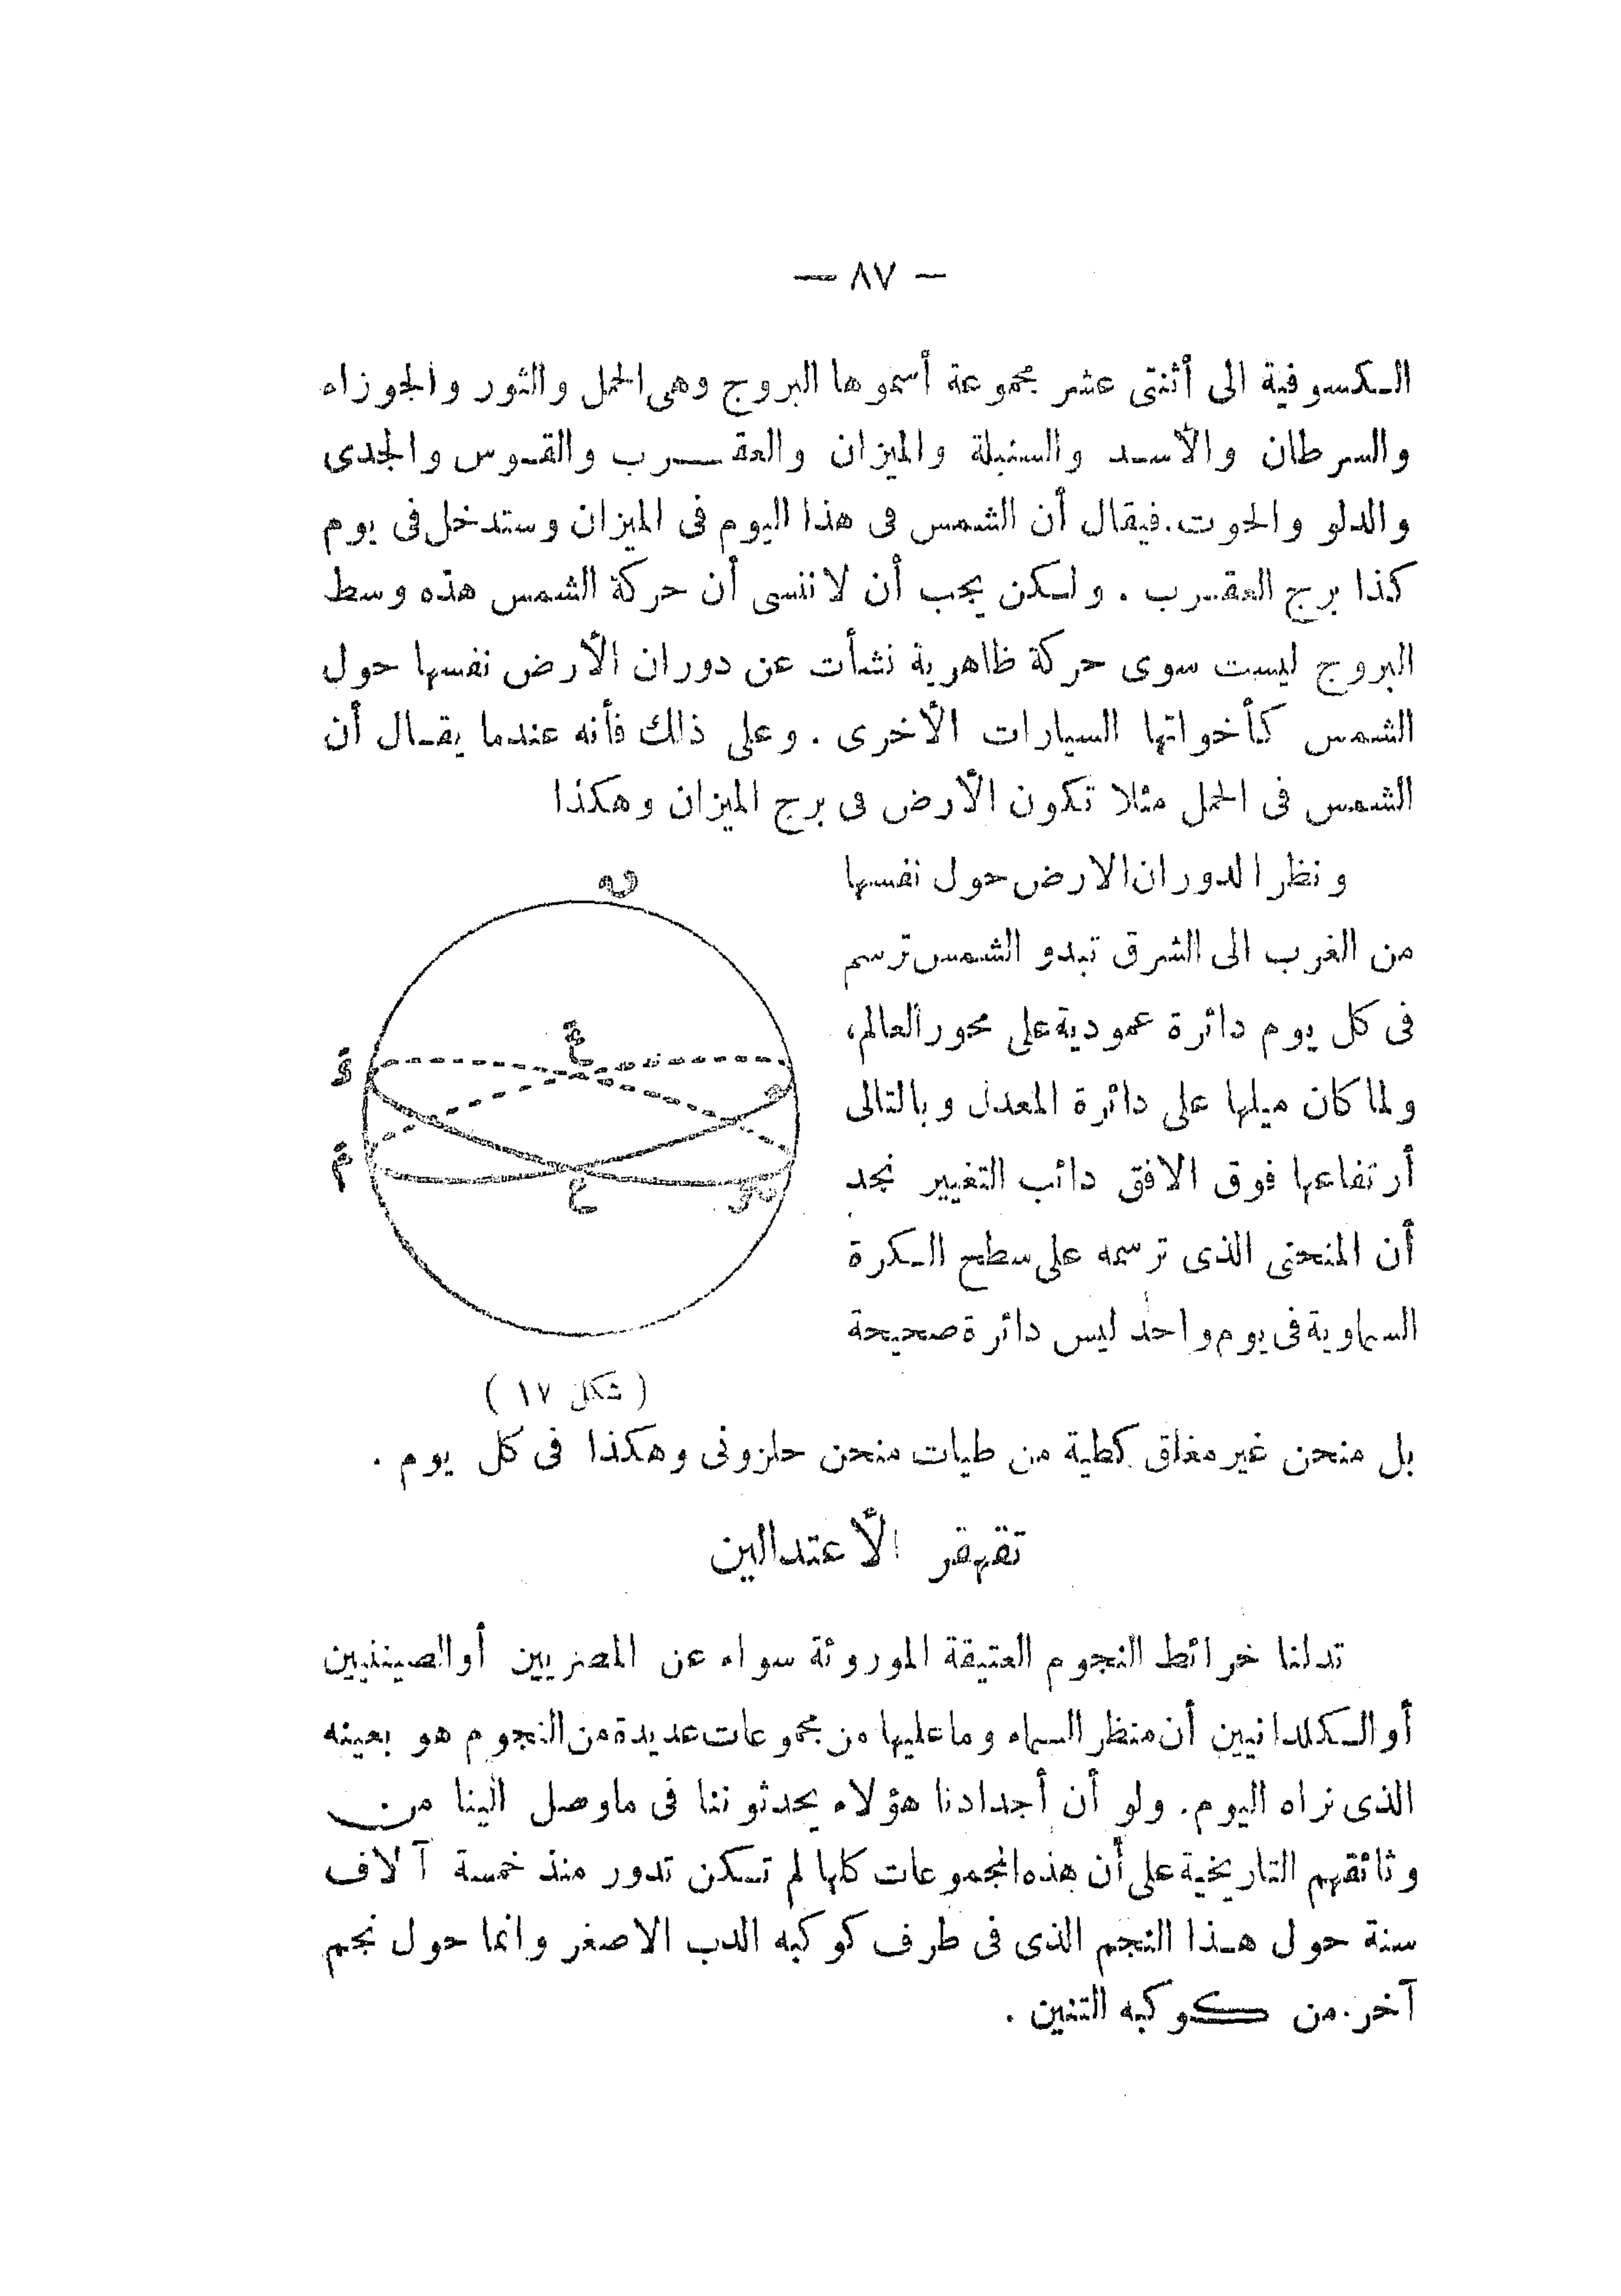 — ٨٧ —
الكسوفية الى أثنتى عشر مجموعة أسموها البروج وهى الحمل والثور والجوزاء
والسرطان والأسد والسنبلة والميزان والعقرب والقوس والجدى
والدلو والحوت. فيقال أن الشمس فى هذا اليوم فى الميزان وستدخل فى يوم
كذا برج العقرب . ولكن يجب أن لاننسى أن حركة الشمس هذه وسط
البروج ليست سوى حركة ظاهرية نشأت عن دوران الأرض نفسها حول
الشمس كأخواتها السيارات الأخرى . وعلى ذلك فأنه عندما يقال أن
الشمس فى الحمل مثلا تكون الأرض فى برج الميزان وهكذا
ونظرا لدوران الارض حول نفسها
من الغرب الى الشرق تبدو الشمس ترسم
فى كل يوم دائرة عمودية على محور العالم،
ولما كان ميلها على دائرة المعدل وبالتالى
أرتفاعها فوق الافق دائب التغيير نجد
أن المنحنى الذى ترسمه على سطح الكرة
السماوية فى يوم واحد ليس دائرة صحيحة
( شكل ١٧ )
بل منحن غير مغلق كطية من طيات منحن حلزونى وهكذا فى كل يوم .
تقهقر الأعتدالين
تدلنا خرائط النجوم العتيقة الموروثة سواء عن المصريين أو الصينيين
أو الكلدانيين أن منظر السماء وما عليها من مجموعات عديدة من النجوم هو بعينه
الذى نراه اليوم. ولو أن أجدادنا هؤلاء يحدثوننا فى ماوصل الينا من
وثائقهم التاريخية على أن هذه المجموعات كلها لم تكن تدور منذ خمسة آلاف
سنة حول هذا النجم الذى فى طرف كوكبه الدب الاصغر وانما حول نجم
آخر من كوكبه التنين .